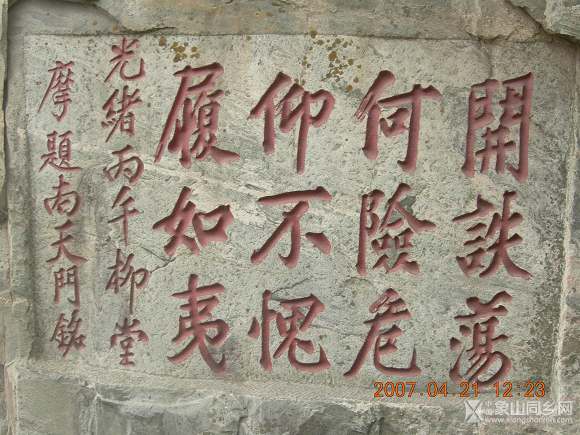 開詄蕩
何險危
仰不愧
履如夷
光緒丙午柳堂
摩題南天門銘
2007.04.21 12:23
象山同乡网